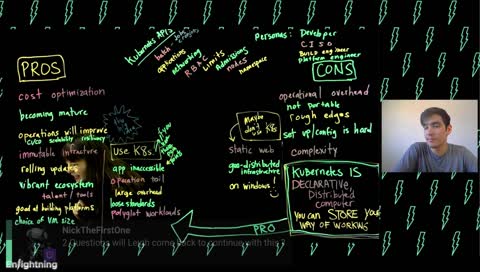 Kubernetes API
batch
applications
networking
RBAC
Limits
Admissions
nodes
namespace
Personas: Developer
CISO
Build engineer
Platform engineer
PROS
cost optimization
becoming mature
operations will improve
CI/CD scalability resiliency
immutable infrastructure
rolling updates
vibrant ecosystem
talent / tools
good at building platforms
choice of VM size
USE K8s
app inaccessible
operation tool
large overhead
loose standards
polyglot workloads
Maybe
don't
use K8s
static web
geo-distributed
infrastructure
on windows!
CONS
operational overhead
not portable
rough edges
set up/config is hard
complexity
Kubernetes IS
DECLARATIVE,
Distributed
computer
you can STORE your
WAY OF WORKING
PRO
NickTheFirstOne
2 Questions will Leigh come back to continue with this ?
Enlightning